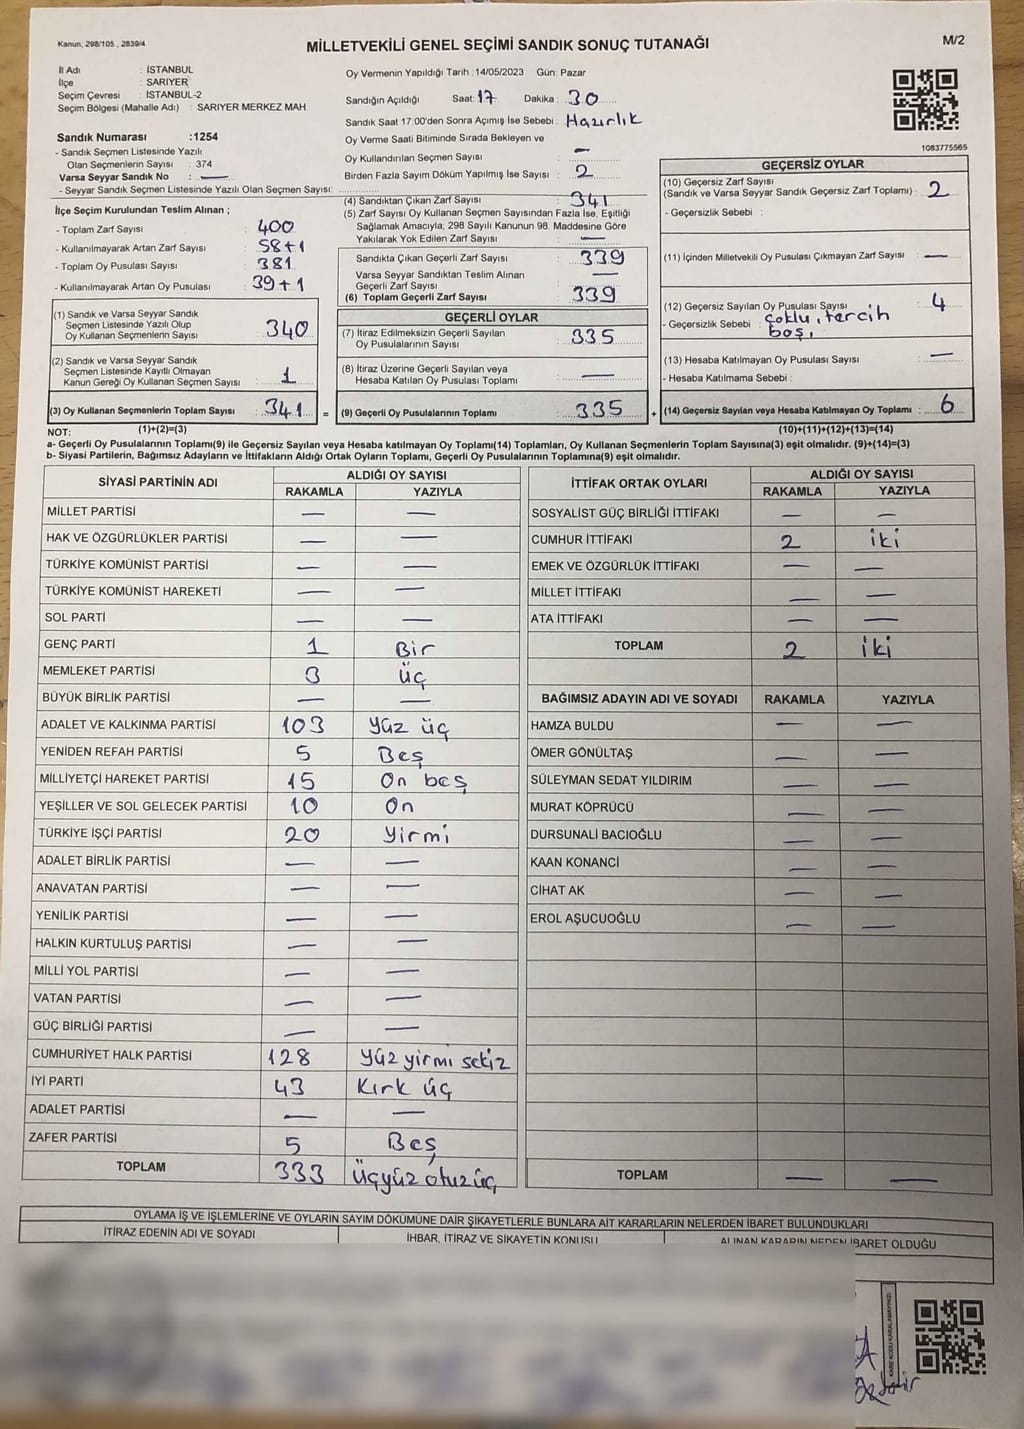 Kanun, 298/105 , 2839/4
MİLLETVEKİLİ GENEL SEÇİMİ SANDIK SONUÇ TUTANAĞI
M/2
İl Adı : İSTANBUL
İlçe : SARIYER
Seçim Çevresi : İSTANBUL-2
Seçim Bölgesi (Mahalle Adı) : SARIYER MERKEZ MAH
Sandık Numarası :1254
- Sandık Seçmen Listesinde Yazılı
Olan Seçmenlerin Sayısı : 374
Varsa Seyyar Sandık No : —
- Seyyar Sandık Seçmen Listesinde Yazılı Olan Seçmen Sayısı:
Oy Vermenin Yapıldığı Tarih : 14/05/2023 Gün: Pazar
Sandığın Açıldığı Saat: 17 Dakika : 30
Sandık Saat 17:00'den Sonra Açımış İse Sebebi : Hazırlık
Oy Verme Saati Bitiminde Sırada Bekleyen ve
Oy Kullandırılan Seçmen Sayısı —
Birden Fazla Sayım Döküm Yapılmış İse Sayısı : 2
1083775565
İlçe Seçim Kurulundan Teslim Alınan ;
- Toplam Zarf Sayısı : 400
- Kullanılmayarak Artan Zarf Sayısı : 58+1
- Toplam Oy Pusulası Sayısı : 381
- Kullanılmayarak Artan Oy Pusulası : 39+1
(1) Sandık ve Varsa Seyyar Sandık
Seçmen Listesinde Yazılı Olup
Oy Kullanan Seçmenlerin Sayısı : 340
(2) Sandık ve Varsa Seyyar Sandık
Seçmen Listesinde Kayıtlı Olmayan
Kanun Gereği Oy Kullanan Seçmen Sayısı : 1
(3) Oy Kullanan Seçmenlerin Toplam Sayısı : 341 =
(4) Sandıktan Çıkan Zarf Sayısı : 341
(5) Zarf Sayısı Oy Kullanan Seçmen Sayısından Fazla İse, Eşitliği
Sağlamak Amacıyla; 298 Sayılı Kanunun 98. Maddesine Göre
Yakılarak Yok Edilen Zarf Sayısı : —
Sandıkta Çıkan Geçerli Zarf Sayısı : 339
Varsa Seyyar Sandıktan Teslim Alınan
Geçerli Zarf Sayısı : —
(6) Toplam Geçerli Zarf Sayısı : 339
GEÇERLİ OYLAR
(7) İtiraz Edilmeksizin Geçerli Sayılan
Oy Pusulalarının Sayısı : 335
(8) İtiraz Üzerine Geçerli Sayılan veya
Hesaba Katılan Oy Pusulası Toplamı : —
(9) Geçerli Oy Pusulalarının Toplamı : 335 +
GEÇERSİZ OYLAR
(10) Geçersiz Zarf Sayısı
(Sandık ve Varsa Seyyar Sandık Geçersiz Zarf Toplamı) : 2
- Geçersizlik Sebebi :
(11) İçinden Milletvekili Oy Pusulası Çıkmayan Zarf Sayısı : —
(12) Geçersiz Sayılan Oy Pusulası Sayısı : 4
- Geçersizlik Sebebi : Çoklu, tercih
boş,
(13) Hesaba Katılmayan Oy Pusulası Sayısı : —
- Hesaba Katılmama Sebebi :
(14) Geçersiz Sayılan veya Hesaba Katılmayan Oy Toplamı : 6
NOT: (1)+(2)=(3) (10)+(11)+(12)+(13)=(14)
a- Geçerli Oy Pusulalarının Toplamı(9) ile Geçersiz Sayılan veya Hesaba katılmayan Oy Toplamı(14) Toplamları, Oy Kullanan Seçmenlerin Toplam Sayısına(3) eşit olmalıdır. (9)+(14)=(3)
b- Siyasi Partilerin, Bağımsız Adayların ve İttifakların Aldığı Ortak Oyların Toplamı, Geçerli Oy Pusulalarının Toplamına(9) eşit olmalıdır.
SİYASİ PARTİNİN ADI ALDIĞI OY SAYISI
RAKAMLA YAZIYLA
MİLLET PARTİSİ — —
HAK VE ÖZGÜRLÜKLER PARTİSİ — —
TÜRKİYE KOMÜNİST PARTİSİ — —
TÜRKİYE KOMÜNİST HAREKETİ — —
SOL PARTİ — —
GENÇ PARTİ 1 Bir
MEMLEKET PARTİSİ 3 üç
BÜYÜK BİRLİK PARTİSİ — —
ADALET VE KALKINMA PARTİSİ 103 yüz üç
YENİDEN REFAH PARTİSİ 5 Beş
MİLLİYETÇİ HAREKET PARTİSİ 15 On beş
YEŞİLLER VE SOL GELECEK PARTİSİ 10 On
TÜRKİYE İŞÇİ PARTİSİ 20 Yirmi
ADALET BİRLİK PARTİSİ — —
ANAVATAN PARTİSİ — —
YENİLİK PARTİSİ — —
HALKIN KURTULUŞ PARTİSİ — —
MİLLİ YOL PARTİSİ — —
VATAN PARTİSİ — —
GÜÇ BİRLİĞİ PARTİSİ — —
CUMHURİYET HALK PARTİSİ 128 yüz yirmi sekiz
İYİ PARTİ 43 Kırk üç
ADALET PARTİSİ — —
ZAFER PARTİSİ 5 Beş
TOPLAM 333 üçyüz otuz üç
İTTİFAK ORTAK OYLARI ALDIĞI OY SAYISI
RAKAMLA YAZIYLA
SOSYALİST GÜÇ BİRLİĞİ İTTİFAKI — —
CUMHUR İTTİFAKI 2 iki
EMEK VE ÖZGÜRLÜK İTTİFAKI — —
MİLLET İTTİFAKI — —
ATA İTTİFAKI — —
TOPLAM 2 iki
BAĞIMSIZ ADAYIN ADI VE SOYADI RAKAMLA YAZIYLA
HAMZA BULDU — —
ÖMER GÖNÜLTAŞ — —
SÜLEYMAN SEDAT YILDIRIM — —
MURAT KÖPRÜCÜ — —
DURSUNALİ BACIOĞLU — —
KAAN KONANCİ — —
CİHAT AK — —
EROL AŞUCUOĞLU — —
TOPLAM — —
OYLAMA İŞ VE İŞLEMLERİNE VE OYLARIN SAYIM DÖKÜMÜNE DAİR ŞİKAYETLERLE BUNLARA AİT KARARLARIN NELERDEN İBARET BULUNDUKLARI
İTİRAZ EDENİN ADI VE SOYADI İHBAR, İTİRAZ VE ŞİKAYETİN KONUSU ALINAN KARARIN NEDEN İBARET OLDUĞU
KARE KODU KARALAMAYINIZ!